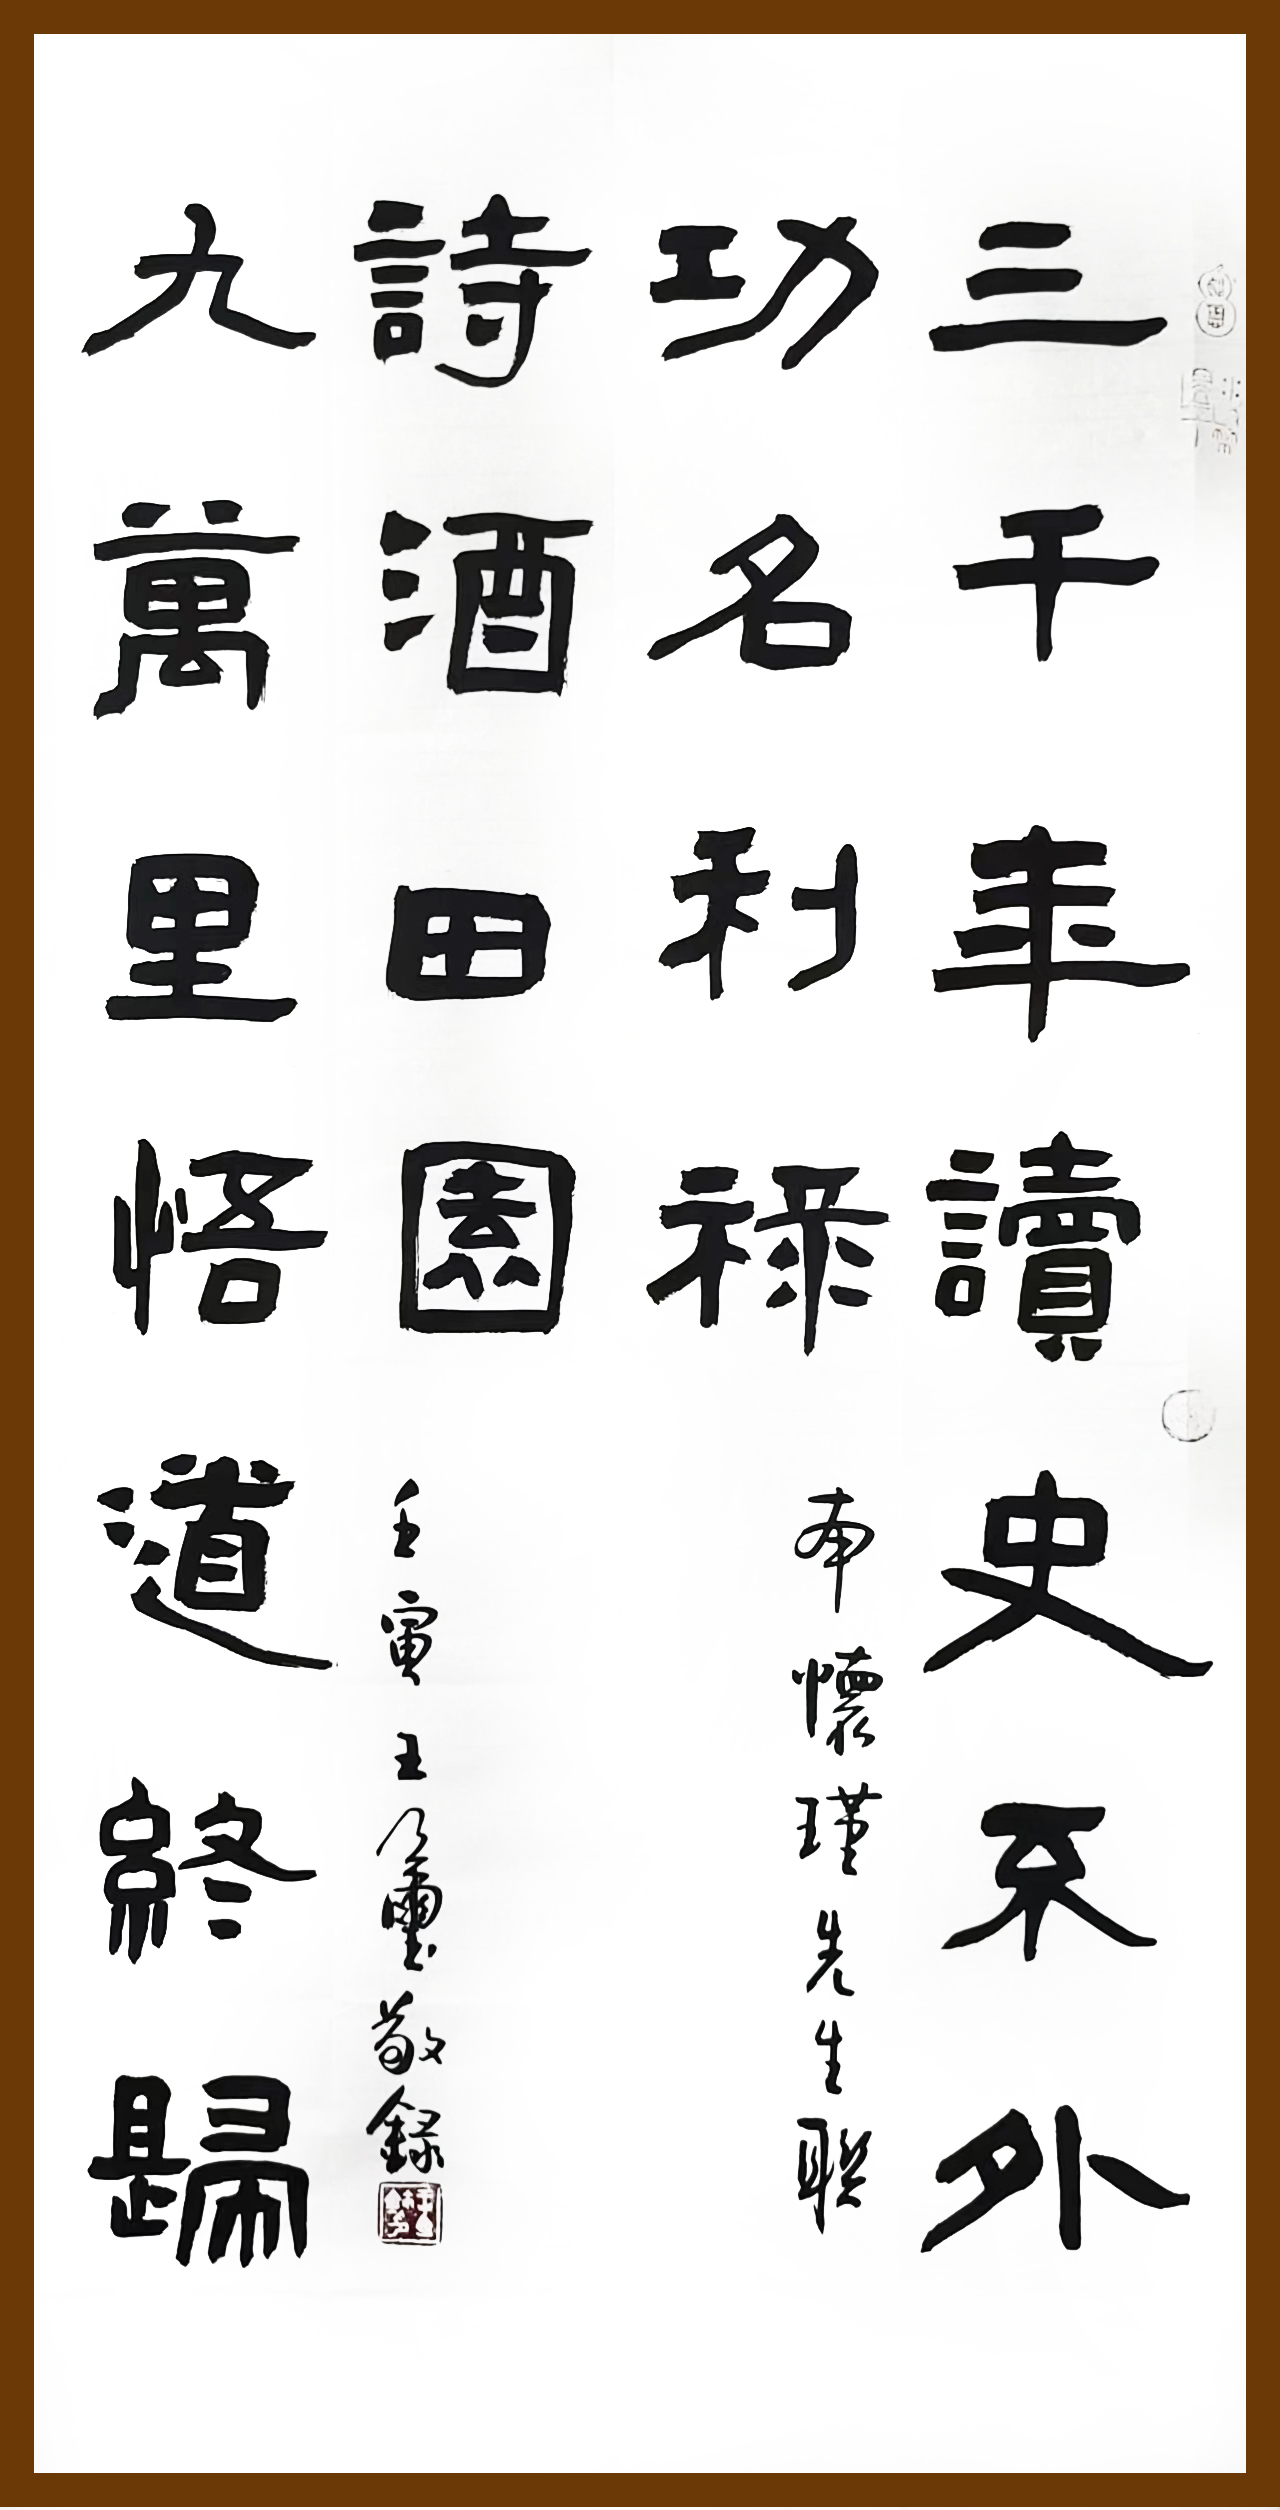 三千年讀史不外
功名利祿
南懷瑾先生聯
九萬里悟道終歸
詩酒田園
壬寅王敬錄